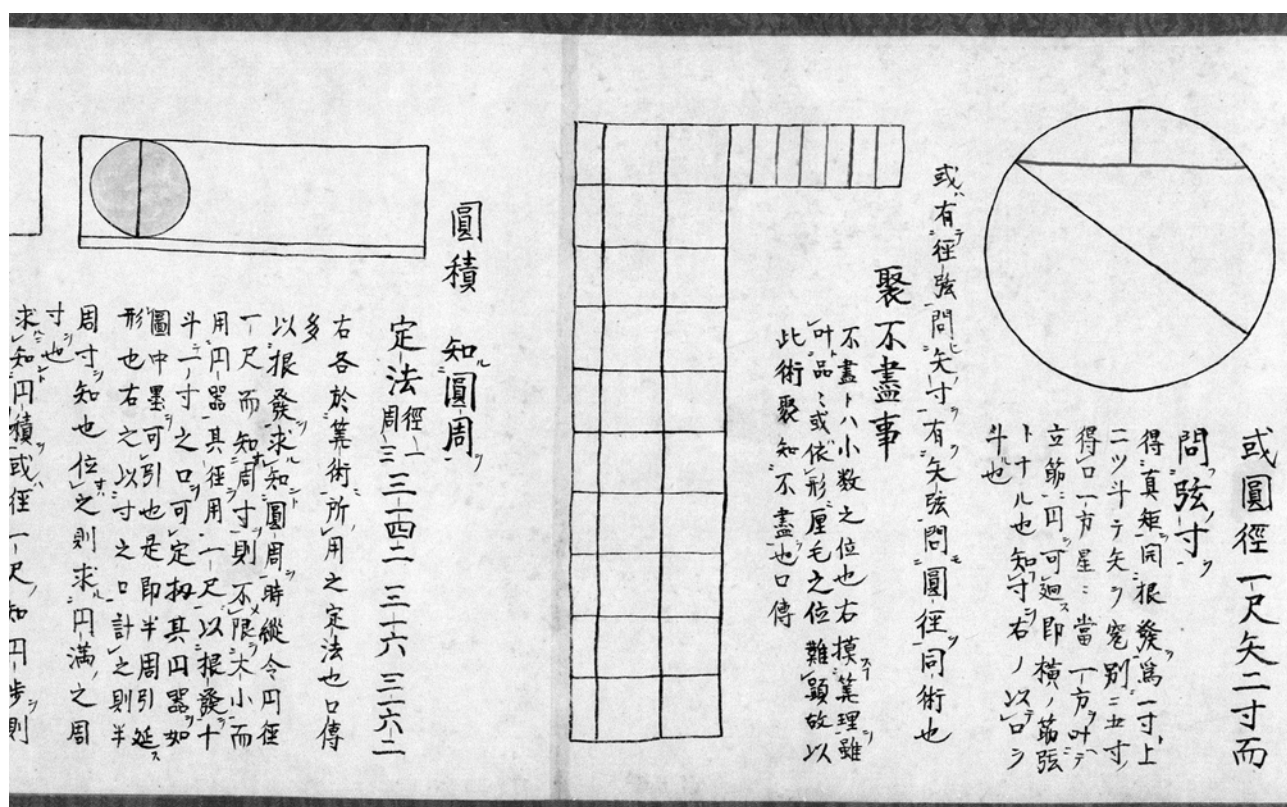 或圓徑一尺矢二寸而
問弦寸
得真矩同根發爲一寸上
二ツ斗テ矢ヲ窓別ニ五寸
得口一方星ニ當一方ヲ叶テ
立筋ニ円可廻即横ノ筋弦
トナル也知寸右ノ以口ヲ
斗也
或有徑弦問矢寸有矢弦問圓徑同術也
聚不盡事
不盡トハ小數之位也右摸筭理雖
叶品ニ或依形厘毛之位難顕故以
此術聚知不盡也口傳
圓積 知圓周
定法 徑一周三 三一四二 三一六 三一六二
右各於筭術所用之定法也口傳
多
以根發求知圓周時縱令円徑
一尺而知周寸則不限大小而
用円器其徑用一尺以根發十
斗一寸之口可定扨其円器如
圖中墨可引也是即半周引延
形也右之以寸之口計之則半
周寸知也位之則求円滿之周
寸也
求知円積或徑一尺知円歩則